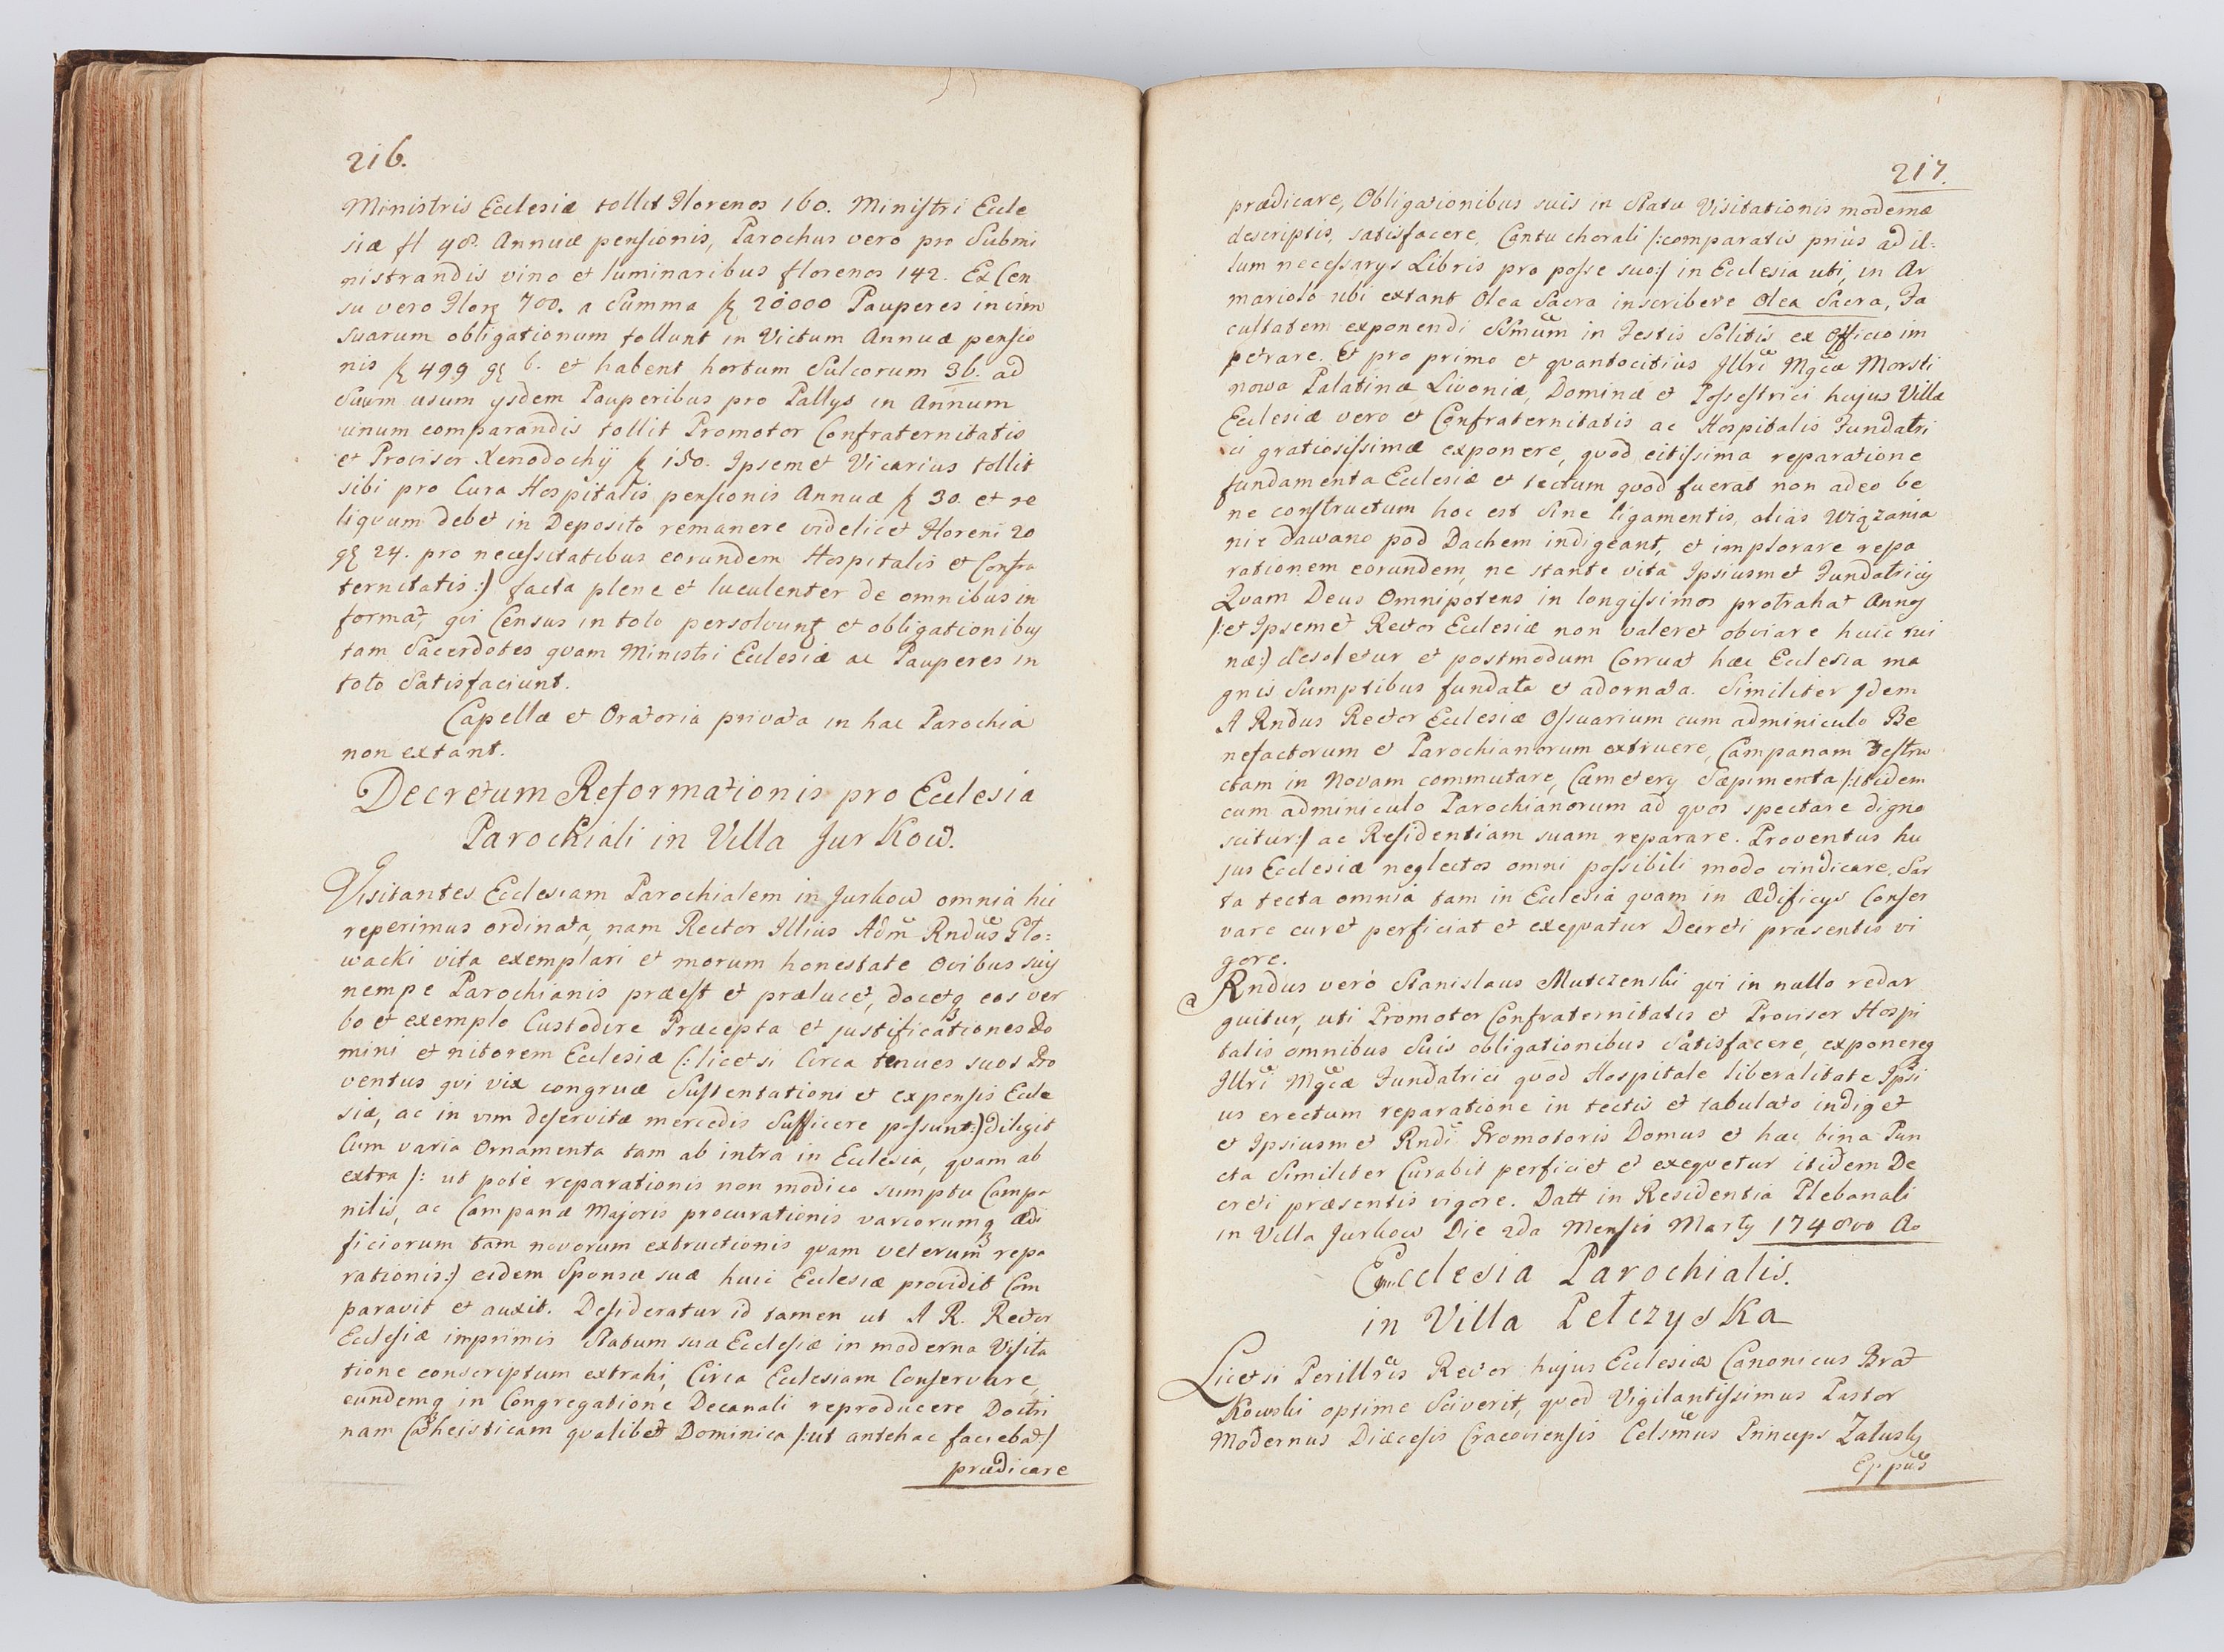 216.
Ministris Ecclesiæ tollit Florenos 160. Ministri Eccle
siæ fl 48. Annuæ pensionis, Parochus vero pro Submi
nistrandis vino et luminaribus florenos 142. Ex Cen
su vero 700. a Summa 20000 Pauperes in vim
Suarum obligationum tollunt in Victum Annuæ pensio
nis 499 6. et habent hortum Sulcorum 36. ad
Suum usum ysdem Pauperibus pro Pallys in Annum
unum comparandis tollit Promotor Confraternitatis
et Provisor Xenodochÿ 150. Ipsemet Vicarius tollit
sibi pro Cura Hospitalis pensionis Annuæ 30. et re
liquum debet in Deposito remanere videlicet Floreni 20
24. pro necessitatibus eorundem Hospitalis et Confra
ternitatis:) facta plene et luculenter de omnibus in
format, qvi Census in toto et obligationibus
tam Sacerdotes qvam Ministri Ecclesiæ ac Pauperes in
toto Satisfaciunt.
Capellæ et Oratoria privata in hac Parochia
non extant.
Decretum Reformationis pro Ecclesia
Parochiali in Villa Jurkow.
Visitantes Ecclesiam Parochialem in Jurkow omnia hic
reperimus ordinata, nam Rector Illius Adm Rndus Glo=
wacki vita exemplari et morum honestate Ovibus suis
nempe Parochianis præest et prælucet, docetq eos ver
bo et exemplo Custodire Præcepta et justificationes Do
mini et nitorem Ecclesiæ (: licetsi Circa tenues suos Pro
ventus qvi vix congruæ Sustentationi et expensis Eccle
siæ, ac in vim deservitæ mercedis Sufficere possunt:) diligit
Cum varia Ornamenta tam ab intra in Ecclesia, qvam ab
extra /: ut poté reparationis non modico sumptu Campa
nilis, ac Campanæ Majoris procurationis variorumq ædi
ficiorum tam novorum extructionis qvam veterumq repa
rationis:) eidem Sponsæ suæ huic Ecclesiæ providit Com
paravit et auxit. Desideratur id tamen ut A R. Rector
Ecclesiæ imprimis Statum suæ Ecclesiæ in moderna Visita
tione conscriptum extrahi, Circa Ecclesiam Conservare,
eundemq in Congregatione Decanali reproducere Doctri
nam Catheisticam qvalibet Dominica /:ut antehac faciebat:/
prædicare
217.
prædicare, Obligationibus suis in Statu Visitationis modernæ
descriptis, satisfacere, Cantu chorali /:comparatis priùs ad il=
lum necessarys Libris pro posse suo:/ in Ecclesia uti, in Ar
mariolo ubi extant Olea Sacra inscribere Olea Sacra, Fa
cultatem exponendi SSmum in Festis Solitis ex Officio im
petrare. Et pro primo et qvantocitius Illri Mgcæ Morsti
nowa Palatinæ Livoniæ, Dominæ et Possestrici hujus Villæ
Ecclesiæ vero et Confraternitatis ac Hospitalis Fundatri
ci gratiosissimæ exponere, qvod citissima reparatione
fundamenta Ecclesiæ et tectum qvod fuerat non adeo be
ne constructum hoc est Sine ligamentis, alias Wiązania
nie dawano pod Dachem indigeant, et implorare repa
rationem eorundem, ne stante vita Ipsiusmet Fundatricis
Qvam Deus Omnipotens in longissimos protrahat Annos
/:et Ipsemet Rector Ecclesiæ non valeret obviare huic rui
næ:) desoletur et postmodum Corruat hæc Ecclesia ma
gnis Sumptibus fundata et adornata. Similiter Idem
A Rndus Rector Ecclesiæ Ossuarium cum adminiculo Be
nefactorum et Parochianorum extruere, Campanam destru
ctam in Novam commutare, Cæmetery Sæpimenta /:itidem
cum adminiculo Parochianorum ad qvos spectare digno
scitur:/ ac Residentiam suam reparare. Proventus hu
jus Ecclesiæ neglectos omni possibili modo vindicare, Sar
ta tecta omnia tam in Ecclesia qvam in Ædificys Conser
vare curet perficiat et exeqvatur Decreti præsentis vi
gore.
a Rndus verò Stanislaus Mutczenski qvi in nullo redar
guitur, uti Promotor Confraternitatis et Provisor Hospi
talis omnibus Suis obligationibus Satisfacere, exponereq
Illri Mgcæ Fundatrici qvod Hospitale liberalitate Ipsi
us erectum reparatione in tectis et tabulato indiget
et Ipsiusmet Rndi Promotoris Domus et hæc bina Pun
cta Similiter Curabit perficiet et exeqvetur itidem De
creti præsentis vigore. Datt in Residentia Plebanali
in Villa Jurkow Die 2da Mensis Marty 1748vo Ao
Ecclesia Parochialis.
in Villa Pełczyska
Licetsi Perillris Rector hujus Ecclesiæ Canonicus Brat
Kowski optime Sciverit, qvod Vigilantissimus Pastor
Modernus Diæcesis Cracoviensis Celsmus Princeps Zaluski
Eppus